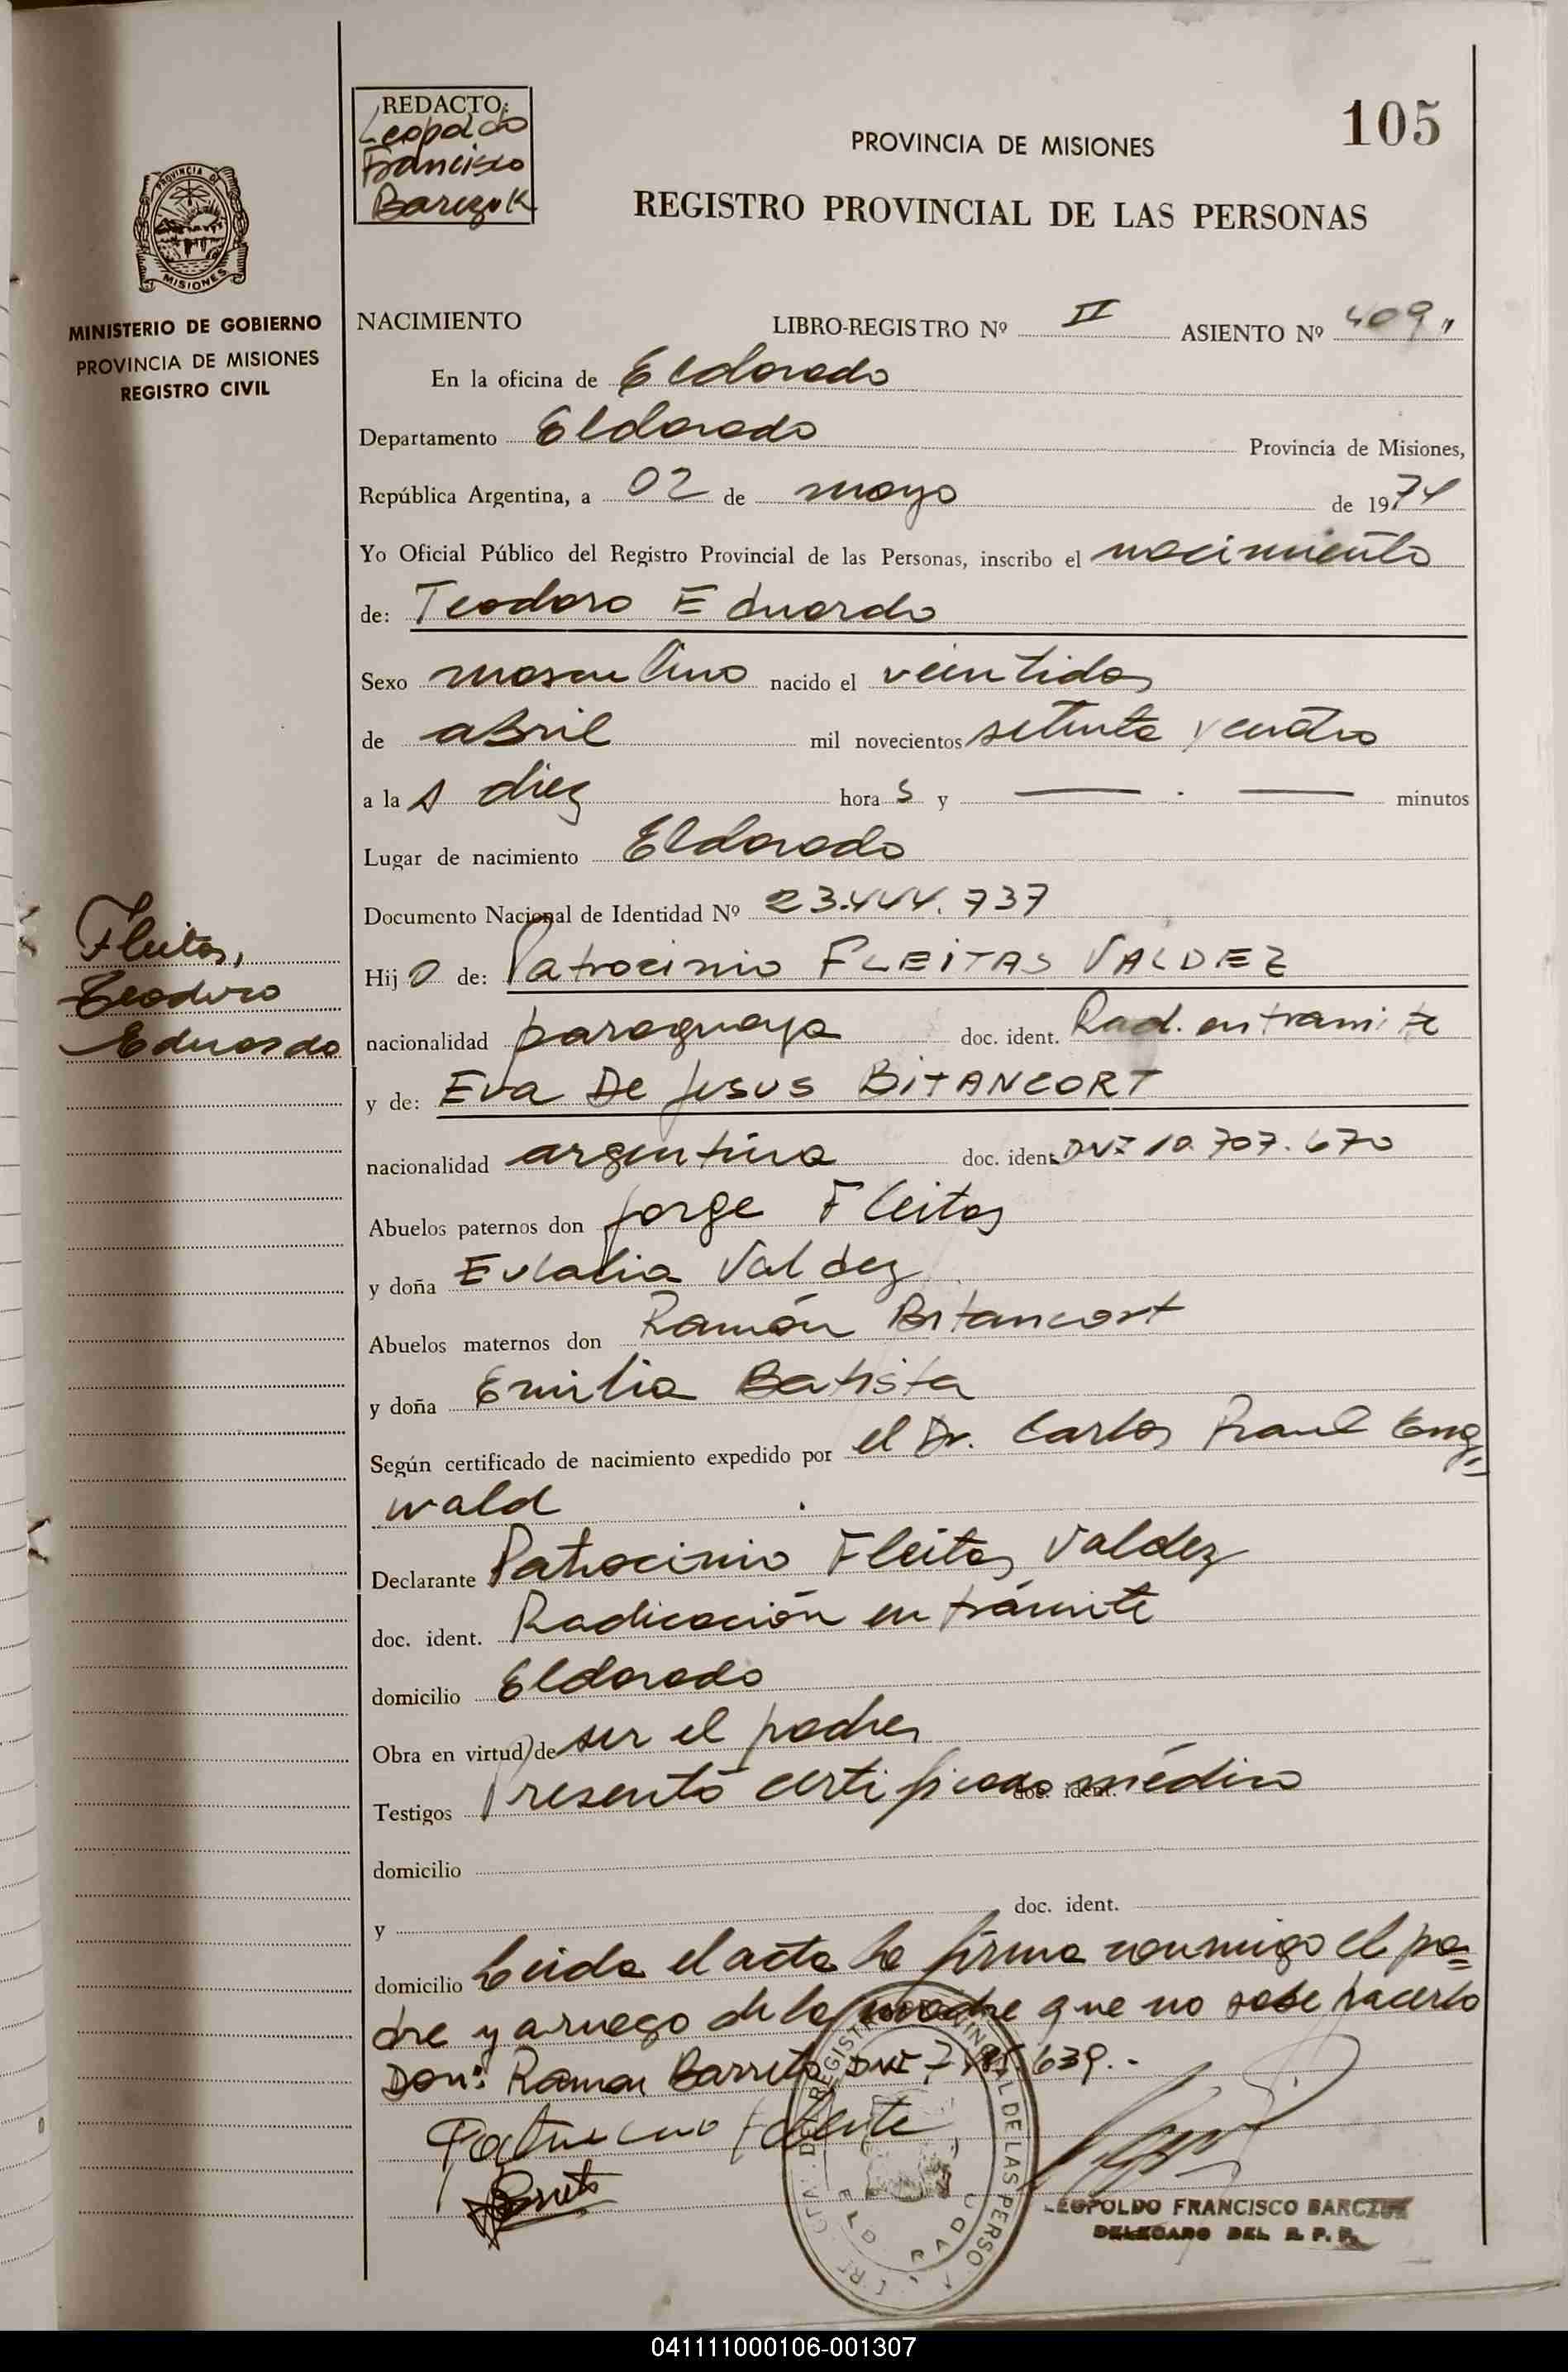 105
REDACTO:
Leopoldo
Francisco
Barczuk
PROVINCIA DE MISIONES
REGISTRO PROVINCIAL DE LAS PERSONAS
PROVINCIA DE
MISIONES
MINISTERIO DE GOBIERNO
PROVINCIA DE MISIONES
REGISTRO CIVIL
NACIMIENTO LIBRO-REGISTRO Nº II ASIENTO Nº 409
En la oficina de Eldorado
Departamento Eldorado Provincia de Misiones,
República Argentina, a 02 de mayo de 1974
Yo Oficial Público del Registro Provincial de las Personas, inscribo el nacimiento
de: Teodoro Eduardo
Sexo masculino nacido el veintidos
de abril mil novecientos setenta y cuatro
a la s diez hora s y — . — minutos
Lugar de nacimiento Eldorado
Documento Nacional de Identidad Nº 23.444.737
Fleitas,
Teodoro
Eduardo
Hij o de: Patrocinio FLEITAS VALDEZ
nacionalidad paraguaya doc. ident. Rad. en tramite
y de: Eva De Jesus BITANCORT
nacionalidad argentina doc. ident. DNI 10.707.670
Abuelos paternos don Jorge Fleitas
y doña Eulalia Valdez
Abuelos maternos don Ramón Bitancort
y doña Emilia Batista
Según certificado de nacimiento expedido por el Dr. Carlos Raul Eng=
wald
Declarante Patrocinio Fleitas Valdez
doc. ident. Radicación en trámite
domicilio Eldorado
Obra en virtud de ser el padre
Testigos Presentó certificado médico doc. ident.
domicilio
y doc. ident.
domicilio Leida el acta la firma conmigo el pa=
dre y a ruego de la madre que no sabe hacerlo
Don: Ramon Barreto DNI 639.-
Barreto
REGISTRO PROVINCIAL DE LAS PERSONAS
LEOPOLDO FRANCISCO BARCZUK
DELEGADO DEL R. P. P.
041111000106-001307